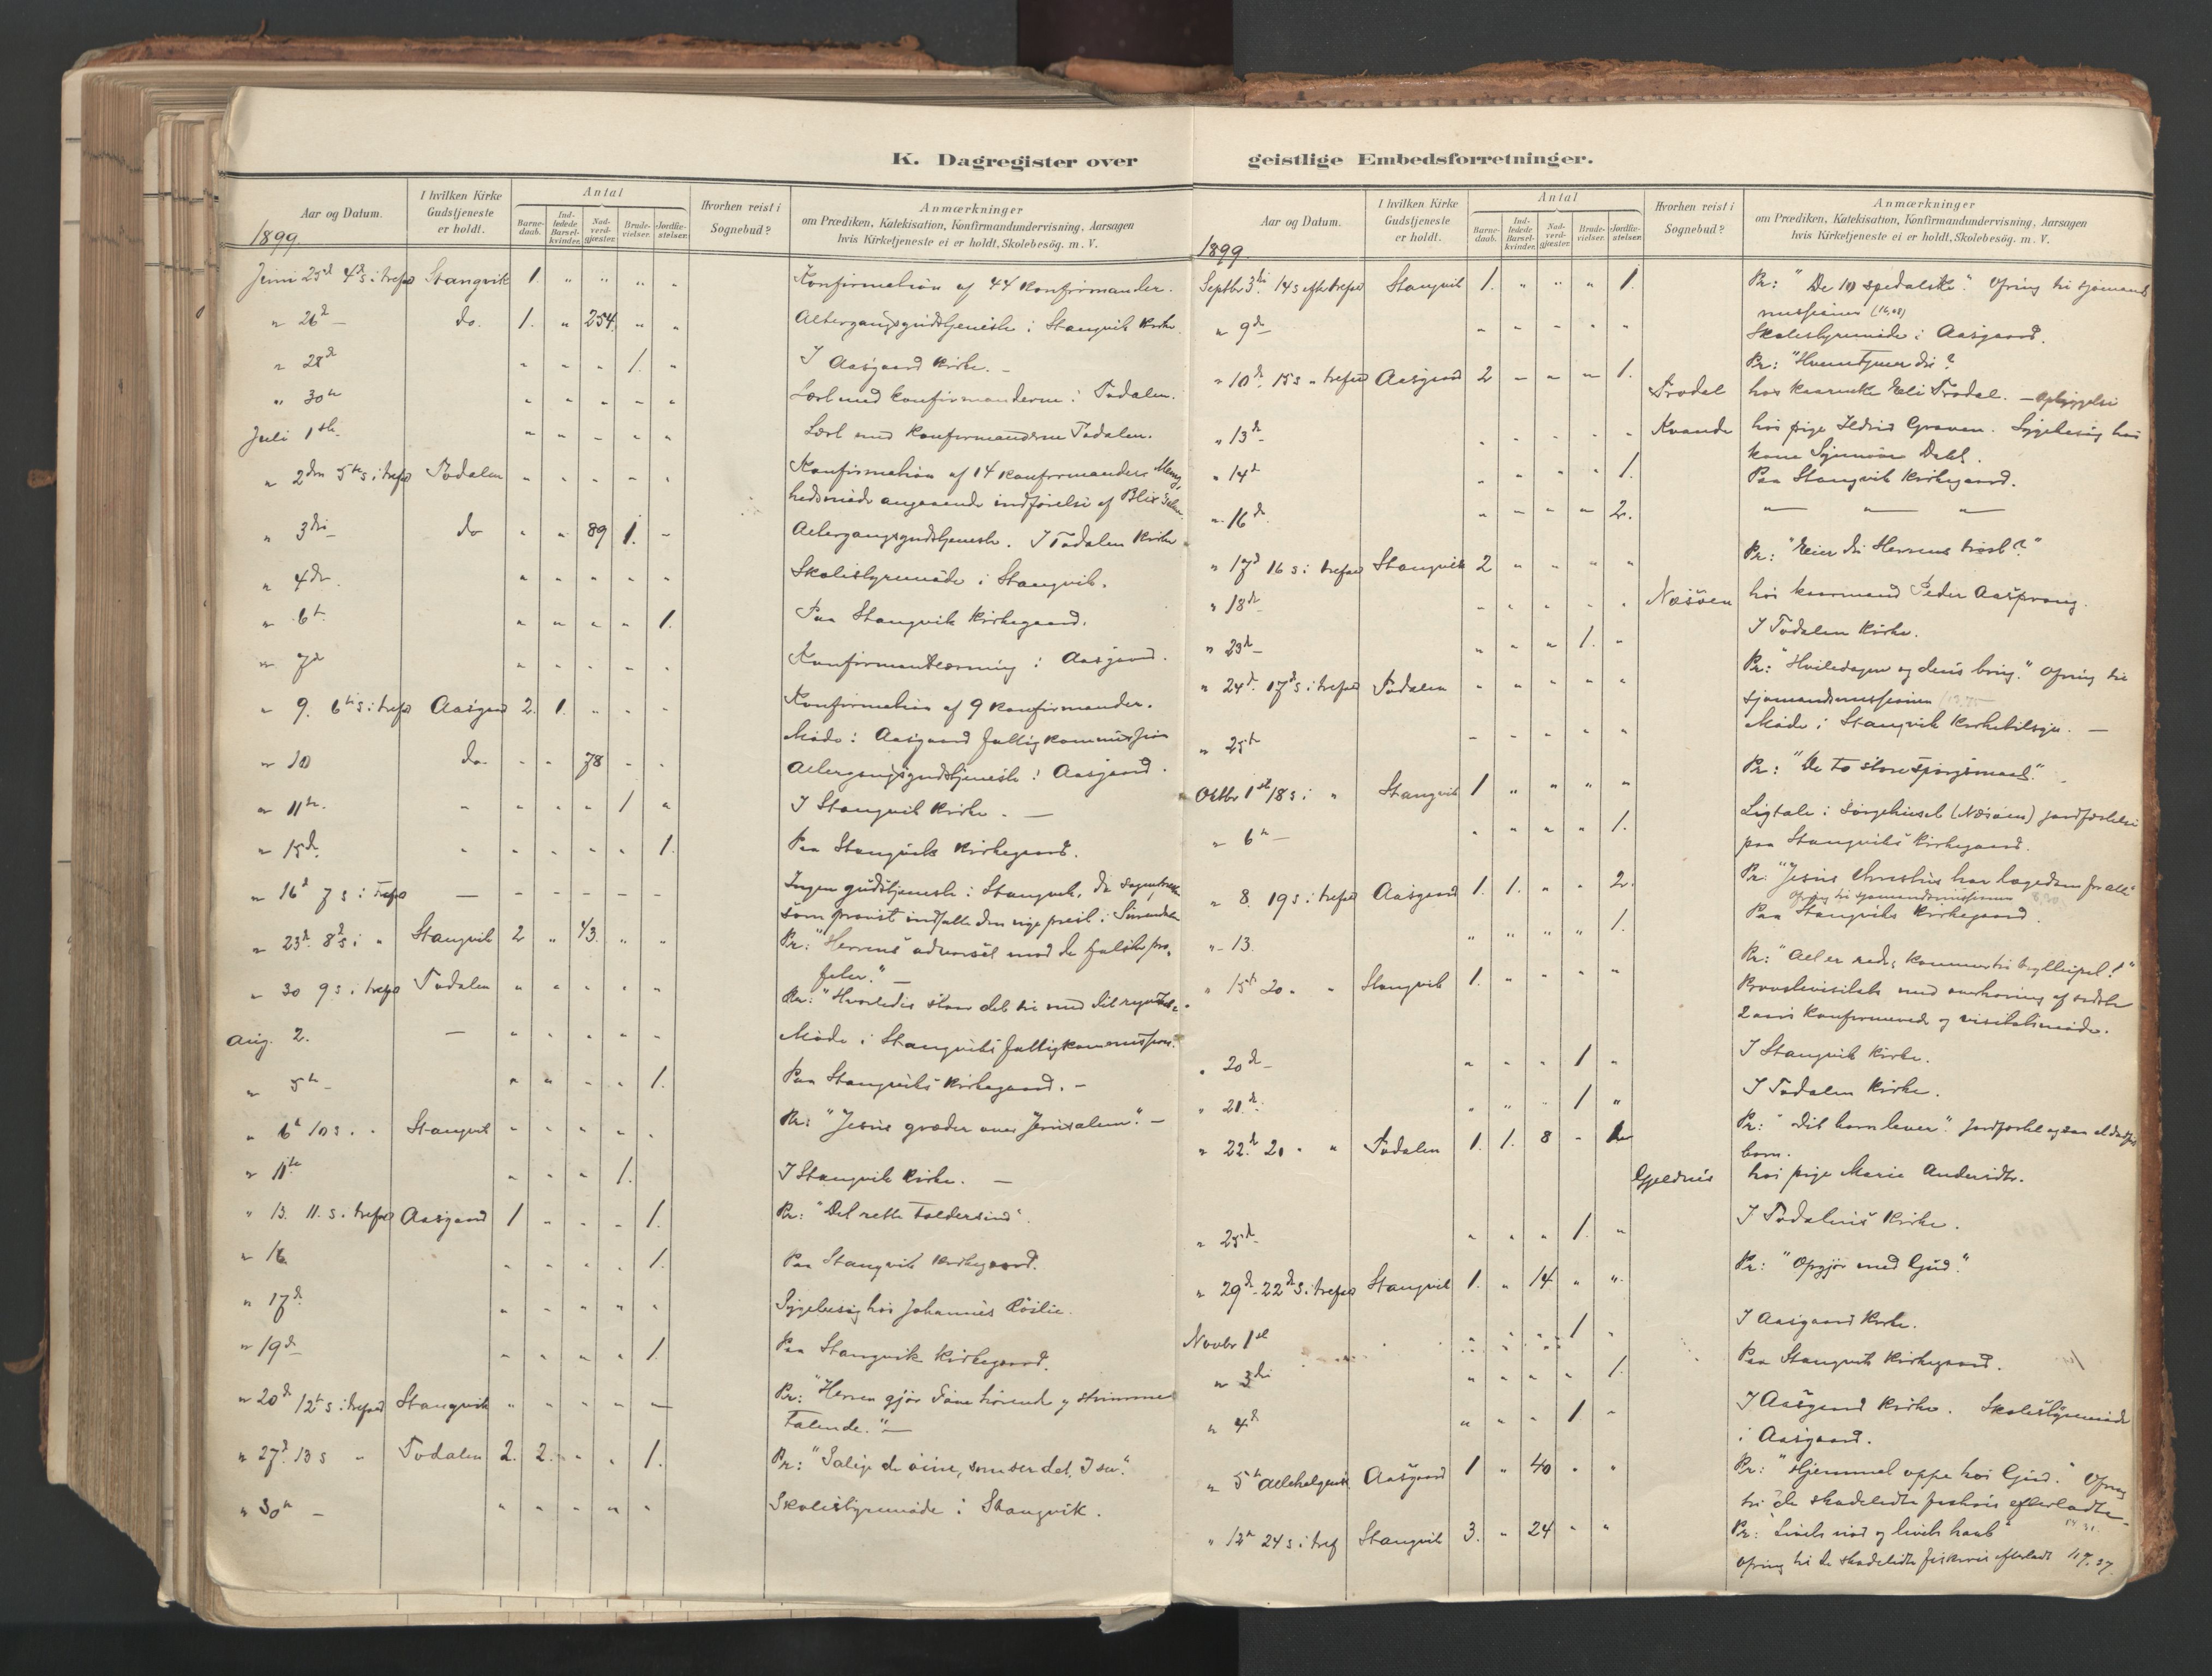 K. Dagregister over
Aar og Datum.
I hvilken Kirke Gudstjeneste er holdt.
Antal
Barne-daab.
Ind-ledede Barsel-kvinder.
Nad-verd-gjæster.
Brude-vielser.
Jordfæ-stelser.
Hvorhen reist i Sognebud?
Anmærkninger
om Prædiken, Katekisation, Konfirmandundervisning, Aarsagen
hvis Kirketjeneste ei er holdt, Skolebesög. m. V.
1899
Juni 25d 4ds i trefo Stangvik 1. " " " " Konfirmation af 44 konfirmander.
" 26d — do. 1. " 254 " " Altergangsgudstjeneste i Stangvik Kirke
" 28d " " " 1. " I Aasgaard Kirke. —
" 30te " " " " " Læst med konfirmanderne i Todalen.
Juli 1ste. " " " " " Læst med konfirmanderne Todalen.
" 2den 5te s i trefo Todalen " " " " " Konfirmation af 14 konfirmander. Menig-
hedsmøde angaaende indførelse af Blix
" 3die do " " 89 1. " Altergangsgudstjeneste. I Todalen Kirke
" 4de. " " " " " Skolestyremøde i Stangvik.
" 6te " " " " 1. Paa Stangvik Kirkegaard.
" 7de " " " " " Konfirmantlæsning i Aasgaard.
" 9. 6te s i trefo Aasgaard 2. 1. " " " Konfirmation af 9 konfirmander.
Møde i Aasgaard fattigkommission
" 10 do " " 78 " " Altergangsgudstjeneste i Aasgaard.
" 11te. " " " " 1 " I Stangvik Kirke. —
" 15d. " " " " " 1. Paa Stangviks Kirkegaard.
" 16d 7 s i trefo — " " " " " Ingen gudstjeneste i Stangvik, da sognepresten
som provst indsatte den nye prest i Surendalen
" 23d. 8d s i " Stangvik 2 " 43. " " Pr: "Herrens advarsel mod de falske pro-
feter." —
" 30 9 s. i trefo Todalen " " " " " Pr: "Hvorledes staar det til med dit
Aug. 2. — " " " " " Møde i Stangviks fattigkommission.
" 5te — " " " " 1. Paa Stangviks Kirkegaard. —
" 6te 10 s. " Stangvik " " " " " Pr: "Jesus græder over Jerusalem". —
" 11te " " " 1. I Stangvik Kirke. —
" 13. 11. s. i trefo Aasgaard 1 " " " 1. Pr: "Det rette toldersind".
" 16 " " " " 1. Paa Stangvik Kirkegaard.
" 17d. " " " " " Sygebesøg hos Johannes
" 19d " " " " 1. Paa Stangvik Kirkegaard.
" 20d 12te s i trefo Stangvik " " " " — Pr: "Herren gjør døve hørende og stumme
talende." —
" 27d. 13 s " Todalen 2. 2. " " 1. Pr: "Salige de øine, som ser det, I ser".
" 30te — " " " " " Skolestyremøde i Stangvik.
geistlige Embedsforretninger.
Aar og Datum.
I hvilken Kirke Gudstjeneste er holdt.
Antal
Barne-daab.
Ind-ledede Barsel-kvinder.
Nad-verd-gjæster.
Brude-vielser.
Jordfæ-stelser.
Hvorhen reist i Sognebud?
Anmærkninger
om Prædiken, Katekisation, Konfirmandundervisning, Aarsagen
hvis Kirketjeneste ei er holdt, Skolebesög. m. V.
1899
Septbr 3di 14 s efter trefo Stangvik 1. " " " 1. Pr: "De 10 spedalske". Ofring til sjømands
missionen (16,08)
" 9de " " " " " Skolestyremøde i Aasgaard.
" 10d. 15 s " trefo Aasgaard 2 — — — 1. Pr: "Hvem tjener du?
Trodal hos kaarenke Eli Trodal. — Opbyggelse
" 13d " " " " " Kvande hos pige Ildrid Graven. Sygebesøg hos
kone Dahl.
" 14d " " " " 1. Paa Stangvik Kirkegaard.
" 16d. " " " " 2. — — —
" 17d 16 s i trefo Stangvik 2 " " " " Pr: "Eier du Herrens trøst?"
" 18d " " " " " Næsøen hos kaarmand Peder Aasprong.
" 23d " " " 1. " I Todalen Kirke.
" 24d. 17d s i trefo Todalen " " " " " Pr: "Hviledagen og dens brug." Ofring til
sjømandsmissionen
" 25te " " " " " Møde i Stangvik Kirketilsyn. —
Oktbr 1st 18 s i " Stangvik 1 " " " " Pr: "De to store spørgsmaal".
" 6te — " " " " 1. Ligtale i sørgehuset (Næsøen) jordfæstelse
paa Stangviks Kirkegaard.
" 8. 19 s. i trefo Aasgaard 1. 1. " " 2. Pr: "Jesus Christus har lægedom for alle"
Ofring til sjømandsmissionen
" 13. " " " " 1. Paa Stangviks Kirkegaard.
" 15te 20 " " Stangvik 1. " " " " Pr: "Alt er rede, kommer til bryllupet!"
Provstevisitats med overhøring af sidste
2 aars konfirmerede og visitatsmøde.
" 20d — " " " 1 " I Stangvik Kirke.
" 21d. " " " 1 " I Todalen Kirke.
" 22d. 21 " " Todalen 1. 1. 8 " Pr: "Dit barn lever".
barn.
Gjeldnes hos pige Marie Andersdtr.
" 25d " " " 1. " I Todalens Kirke.
" 29d — 22d s. i trefo Stangvik 1. " 14 " " Pr: "Opgjør med Gud".
Novbr 1st " " " 1 " I Aasgaard Kirke.
" 3di " " " " 1. Paa Stangvik Kirkegaard.
" 4d " " " 1 " I Aasgaard Kirke. Skolestyremøde
i Aasgaard.
" 5te Allehelgens Aasgaard 1 " 40 " " Pr: "Hjemmet oppe hos Gud." Ofring
til de skadelidte fiskeres efterladte
" 12te 24 s i tref Stangvik 3. " 24 " " Pr: "Livets nød og livets haab"
Ofring til de skadelidte fiskeres efterladte 117.27.